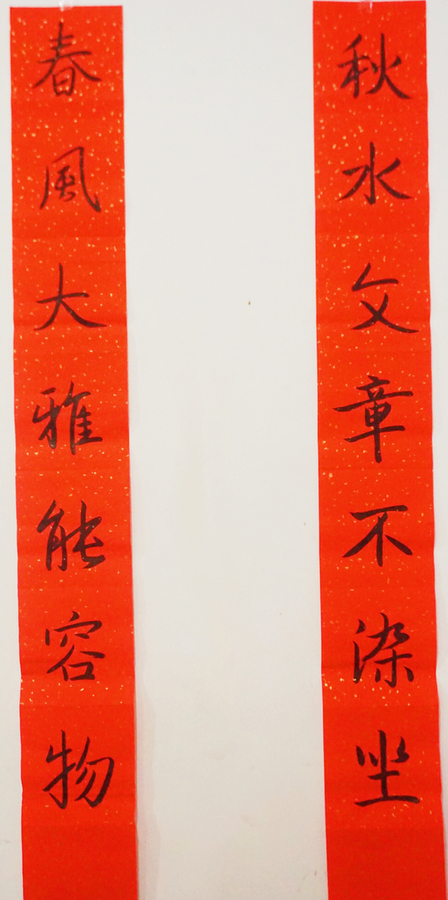 春風大雅能容物
秋水文章不染尘